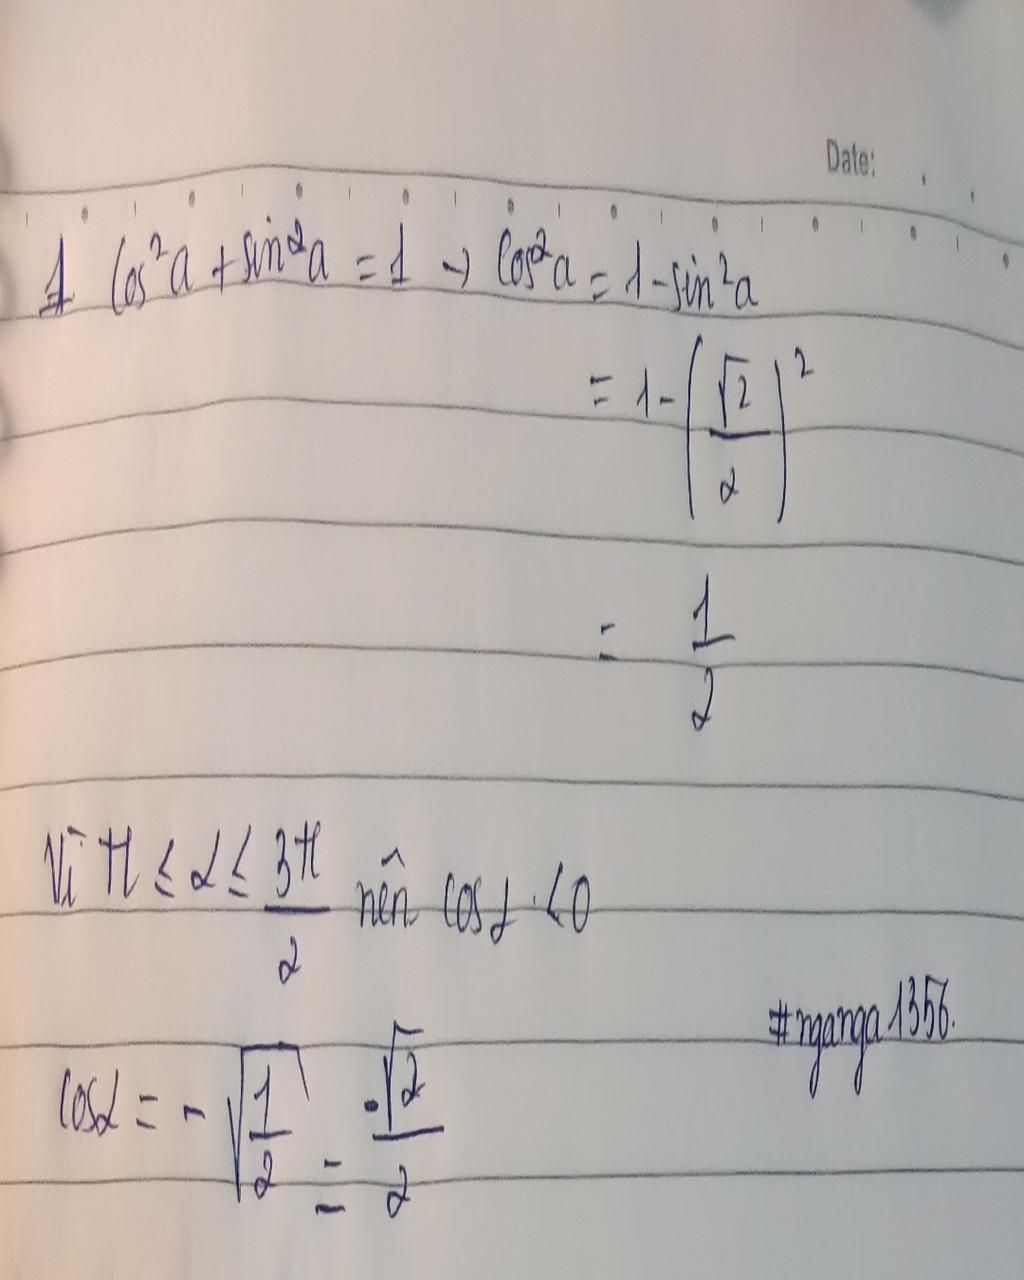 Date:
1 Cos²a + sin²a = 1 → Cos²a = 1 - sin²a
= 1 - (√2/2)²
= 1/2
Vì π ≤ α ≤ 3π/2 nên cos α < 0
#nganga1356.
cosα = - √(1/2) = -√2/2